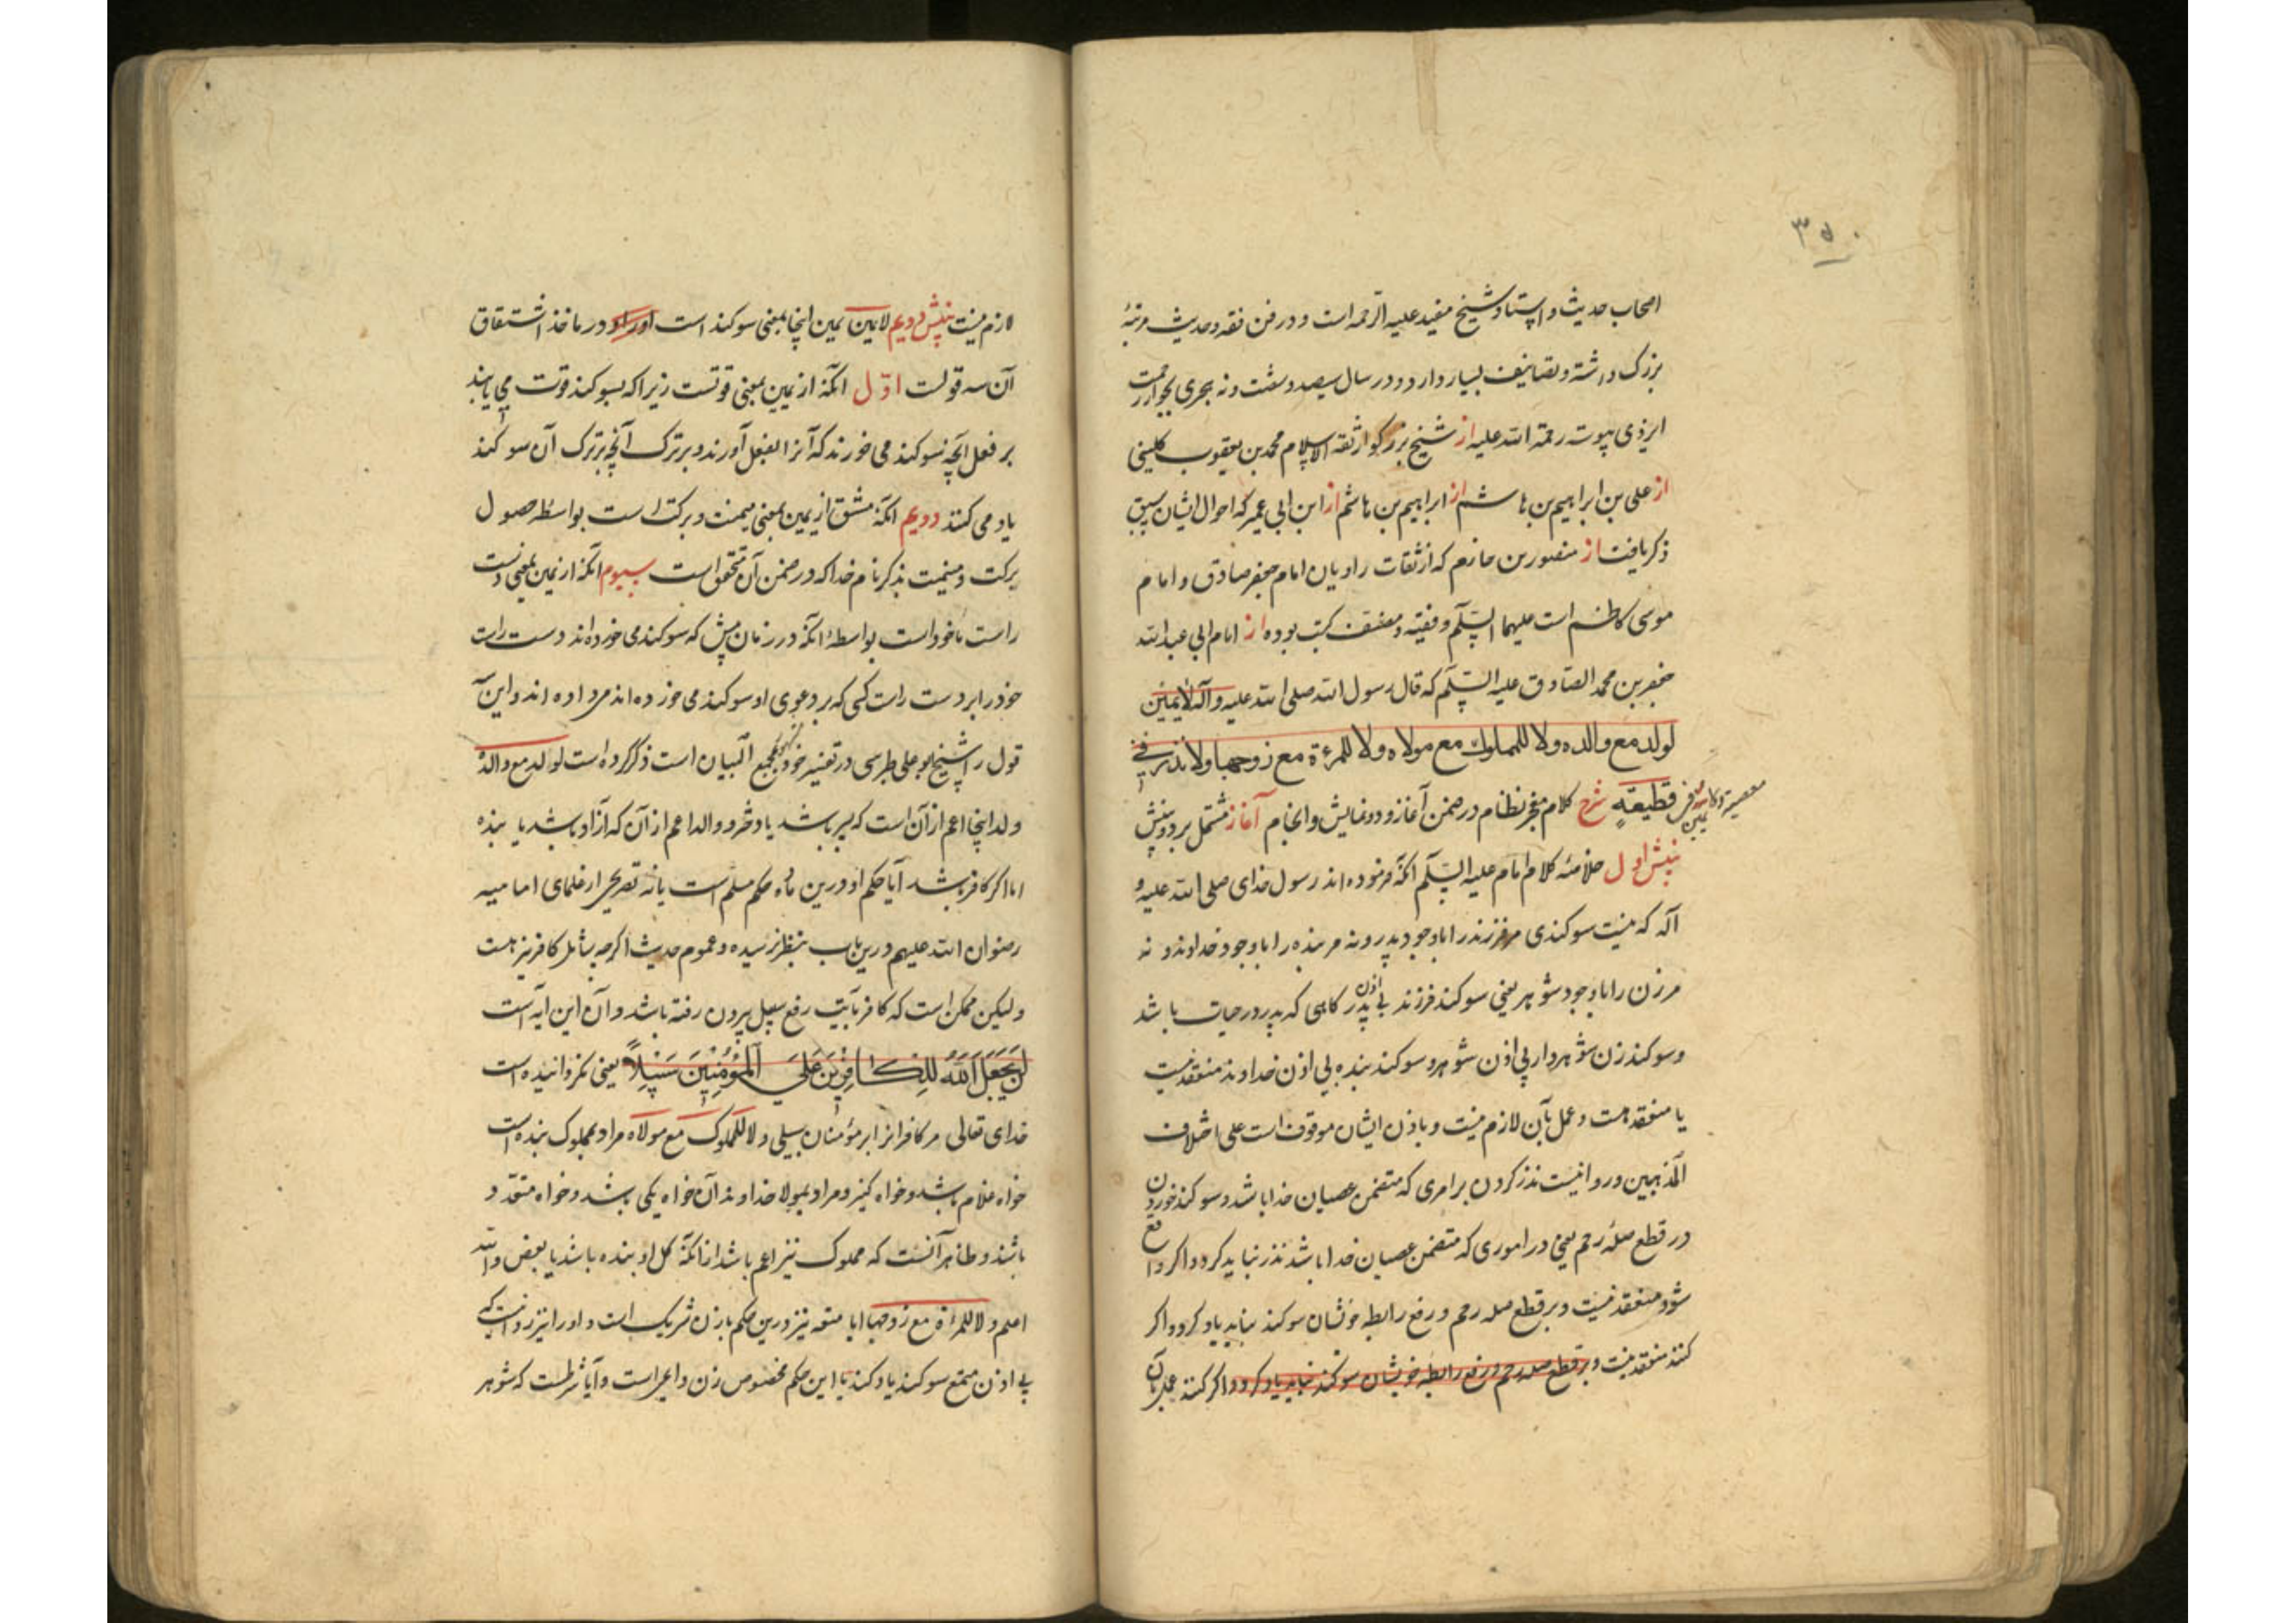 ۳۵۰
اصحاب حدیث و استاد شیخ مفید علیه الرحمه است و در فن فقه و حدیث مرتبهٔ
بزرک داشته و تصانیف بسیار دارد و در سال سیصد و شصت و نه هجری بجوار رحمت
ایزدی پیوست رحمة الله علیه از شیخ بزرکوار ثقة الاسلام محمد بن یعقوب کلینی
از علی بن ابراهیم بن هاشم از ابراهیم بن هاشم از ابن ابی عمیر که احوال ایشان سبق
ذکر یافت از منصور بن حازم که از ثقات راویان امام جعفر صادق و امام
موسی کاظم است علیهما السلام و فقیه و مصنف کتب بوده از امام ابی عبد الله
جعفر بن محمد الصادق علیه السلام که قال رسول الله صلی الله علیه و آله لا یمین
لولد مع والده ولا للمملوك مع مولاه ولا للمرءة مع زوجها ولا نذر في
معصیة ولا یمین فی قطیعة شرح کلام معجز نظام در ضمن آغاز و دو نمایش و انجام آغاز مشتمل بر دو بینش
بینش اول خلاصهٔ کلام امام علیه السلام آنکه فرموده اند رسول خدای صلی الله علیه و
آله که نیست سوکندی مر فرزند را با وجود پدر و نه مر بنده را با وجود خداوند و نه
مر زن را با وجود شوهر یعنی سوکند فرزند بی اذن پدر کاهی که پدر در حیات باشد
و سوکند زن شوهر دار بی اذن شوهر و سوکند بنده بی اذن خداوند منعقد نیست
یا منعقد هست و عمل بآن لازم نیست و باذن ایشان موقوف است علی اختلاف
المذهبین و روا نیست نذر کردن بر امری که متضمن عصیان خدا باشد و سوکند خوردن
در قطع صلهٔ رحم یعنی در اموری که متضمن عصیان خدا باشد نذر نباید کرد و اکر واقع
شود منعقد نیست و بر قطع صله رحم و رفع رابطه خویشان سوکند نباید یاد کرد و اکر
کنند منعقد نیست و بر قطع صله رحم و رفع رابطه خویشان سوکند نباید یاد کرد و اکر کنند عمل بآن
لازم نیست بینش دویم لا یمین یمین اینجا بمعنی سوکند است و در ماخذ اشتقاق
آن سه قولست اوّل آنکه از یمین بمعنی قوتست زیرا که بسوکند قوت می یابند
بر فعل آنچه سوکند می خورند که آنرا بفعل آورند و بر ترک آنچه بر ترک آن سوکند
یاد می کنند دویم آنکه مشتق از یمین بمعنی میمنت و برکت است بواسطه حصول
برکت و میمنت بذکر نام خدا که در ضمن آن متحقق است سیوم آنکه از یمین بمعنی دست
راست ماخوذ است بواسطهٔ آنکه در زمان پیش که سوکند می خورده اند دست راست
خود را بر دست راست کسی که بر دعوی او سوکند می خورده اند می داده اند و این
قول را شیخ ابو علی طبرسی در تفسیر خود که مجمع البیان است ذکر کرده است لولد مع والده
ولد اینجا اعم از آن است که پسر باشد یا دختر و والد اعم از آن که آزاد باشد یا بنده
اما اکر کافر باشد آیا حکم او درین ماده حکم مسلم است یا نه تصریحی از علمای امامیه
رضوان الله علیهم درین باب بنظر نرسیده و عموم حدیث اکرچه شامل کافر نیز هست
ولیکن ممکن است که کافر بآیت رفع سبیل بیرون رفته باشد و آن این آیه است
لَنْ یَجْعَلَ اللّٰهُ لِلْکَافِرِینَ عَلَی الْمُؤْمِنِینَ سَبِیلاً یعنی نکردانیده است
خدای تعالی مر کافرانرا بر مؤمنان سبیلی ولا للمملوک مع مولاه مراد بمملوک بنده است
خواه غلام باشد و خواه کنیز و مراد بمولا خداوند آن خواه یکی باشد و خواه متعدّد
باشند و ظاهر آنست که مملوک نیز اعم باشد از آنکه کل او بنده باشد یا بعض و الله
اعلم ولا للمرأة مع زوجها آیا متعه نیز درین حکم با زن شریک است و او را نیز روا نیست که
بی اذن متمتع سوکند یاد کند یا این حکم مخصوص زن داعر است و آیا شرطست که شوهر